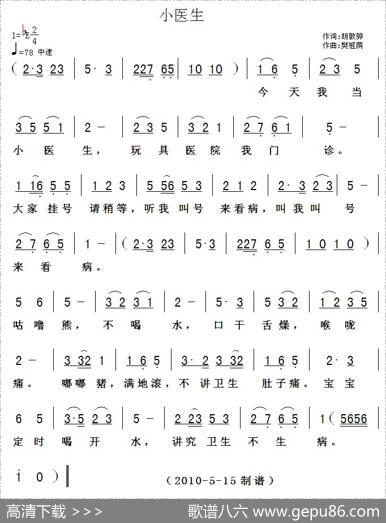 小医生
1=♭E 2/4
作词:胡敦骅
♩=78 中速
作曲:樊祖荫
(2·3 23 | 5·3 5 | 227 65 | 10 10) | 1 6 5 | 2 3 5 |
今 天 我 当
3 5 5 1 | 2 - | 2·3 5 | 3 2 1 | 2 7 6 1 | 5 - |
小 医 生, 玩 具 医 院 我 门 诊。
1 16 5 5 | 1 16 5 | 5·3 5 5 | 2·1 2 | 3·2 2 3 | 5 - |
大家 挂号 请稍等, 听我 叫号 来看病, 叫我叫 号
2 7 6 5 | 1 - | (2·3 23 | 5·3 5 | 227 65 | 1010) |
来 看 病。
5 6 | 5 - | 3 2 3 1 | 2 - | 5·3 5 | 3 2 1 | 3 2 3 |
咕 噜 熊, 不 喝 水, 口干 舌燥, 喉咙
2 - | 3 32 1 | 1 6 5 | 3 32 1 | 1 6 5 | 2 3 |
痛。 嘟嘟 猪, 满地滚, 不讲卫生 肚子痛。宝宝
6 5 | 3·5 2 3 | 5 - | 3·2 1 3 | 2·3 5 | 1 (5656 |
定 时 喝 开 水, 讲究 卫生 不 生 病。
i 0) ‖
(2010-5-15 制谱)
高清下载 >>>
歌谱八六 www.gepu86.com